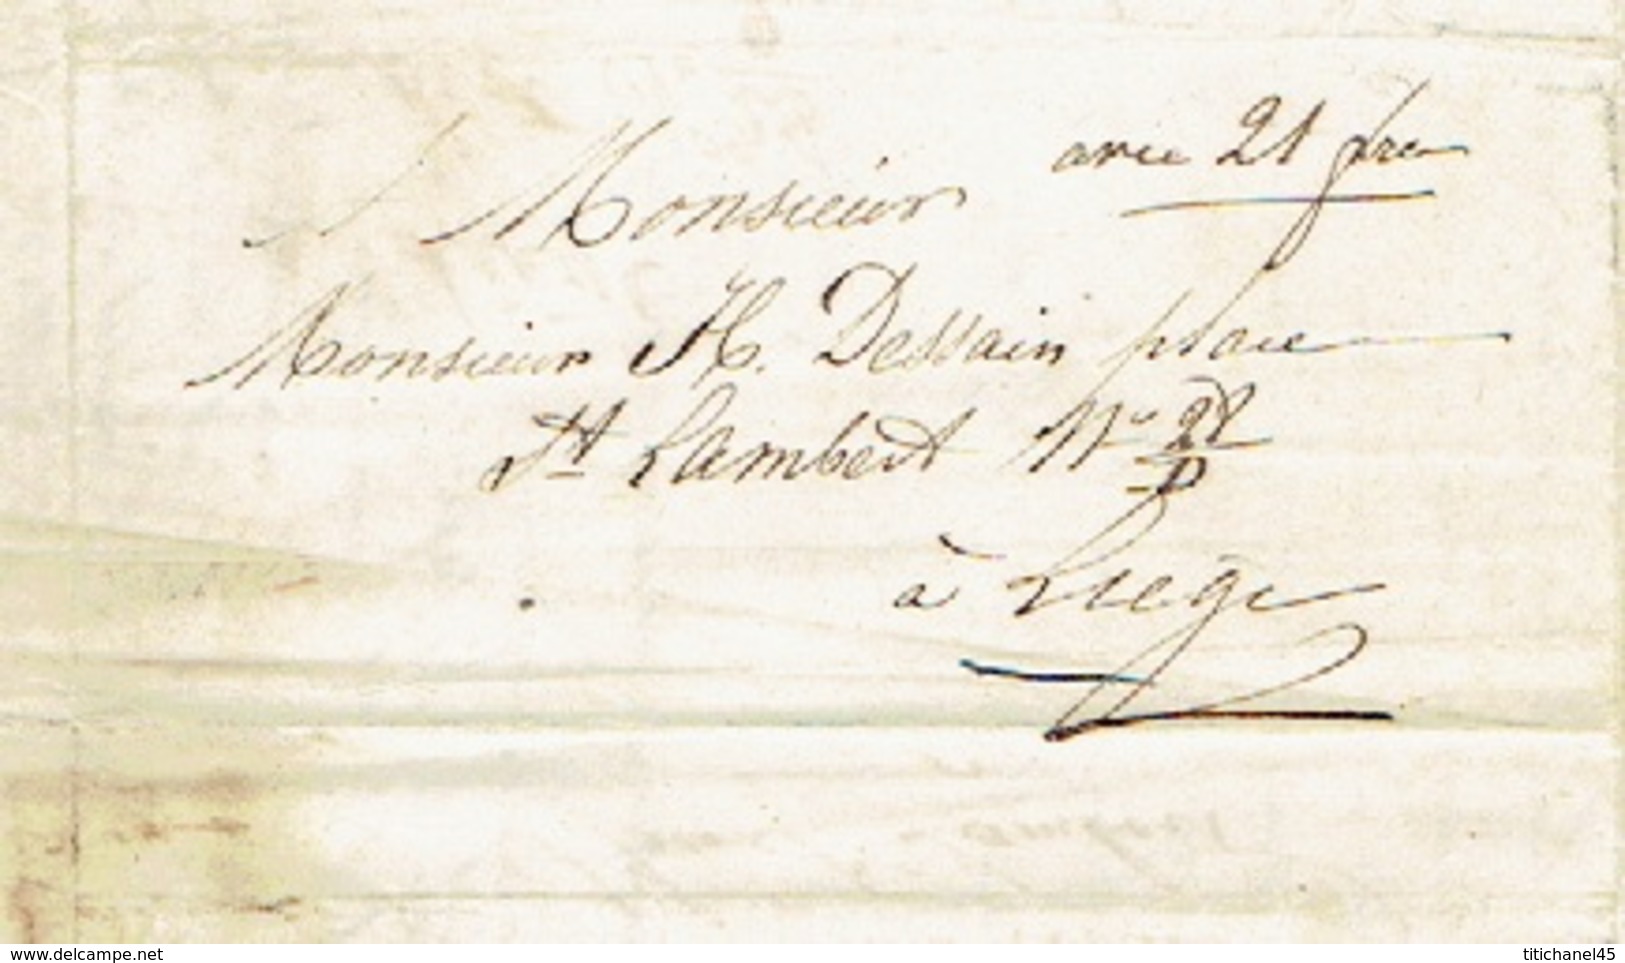 avec 21 frcs
A Monsieur
Monsieur H. Dessain place
St Lambert No
à Liege
www.delcampe.net titichanel45